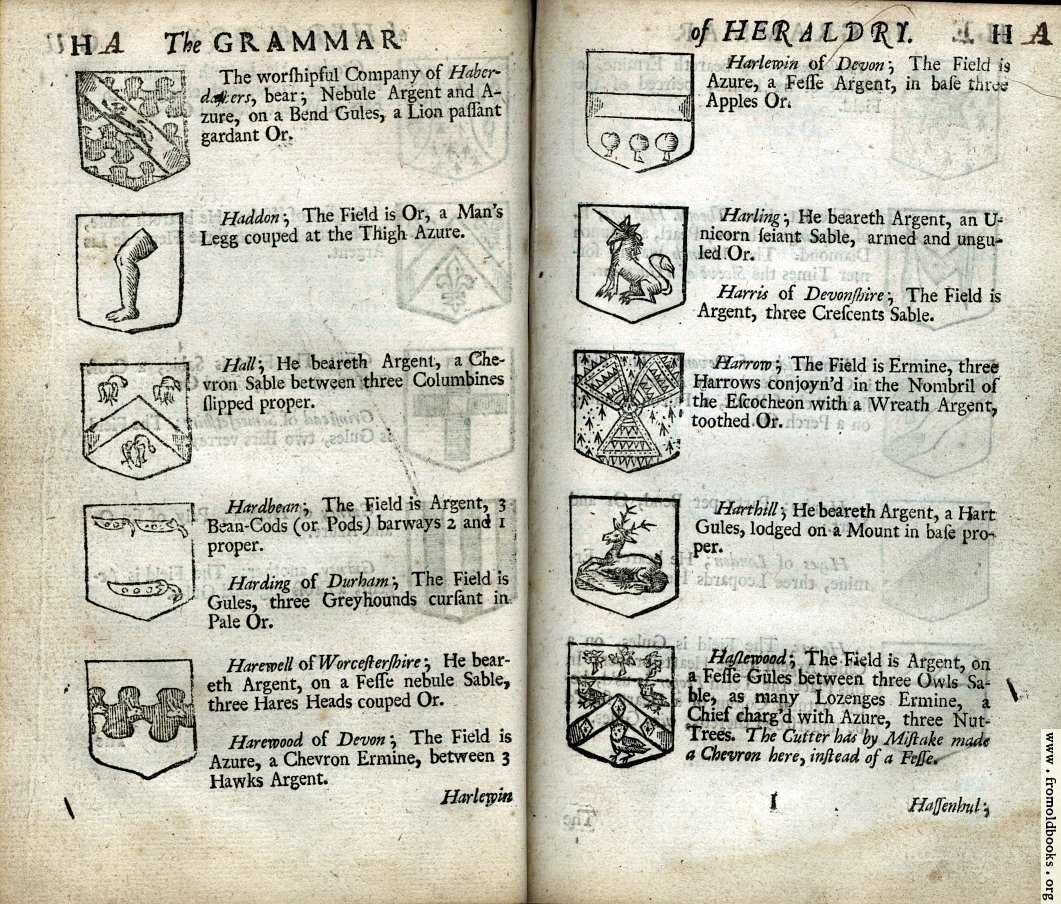 H A The GRAMMAR
The worſhipful Company of Haber-
daſhers, bear; Nebule Argent and A-
zure, on a Bend Gules, a Lion paſſant
gardant Or.
Haddon; The Field is Or, a Man's
Legg couped at the Thigh Azure.
Hall; He beareth Argent, a Che-
vron Sable between three Columbines
ſlipped proper.
Hardbean; The Field is Argent, 3
Bean-Cods (or Pods) barways 2 and 1
proper.
Harding of Durham; The Field is
Gules, three Greyhounds curſant in
Pale Or.
Harewell of Worceſterſhire; He bear-
eth Argent, on a Feſſe nebule Sable,
three Hares Heads couped Or.
Harewood of Devon; The Field is
Azure, a Chevron Ermine, between 3
Hawks Argent.
Harlewin
of HERALDRY. H A
Harlewin of Devon; The Field is
Azure, a Feſſe Argent, in baſe three
Apples Or.
Harling; He beareth Argent, an U-
nicorn ſeiant Sable, armed and ungu-
led Or.
Harris of Devonſhire; The Field is
Argent, three Creſcents Sable.
Harrow; The Field is Ermine, three
Harrows conjoyn'd in the Nombril of
the Eſcocheon with a Wreath Argent,
toothed Or.
Harthill; He beareth Argent, a Hart
Gules, lodged on a Mount in baſe pro-
per.
Haſlewood; The Field is Argent, on
a Feſſe Gules between three Owls Sa-
ble, as many Lozenges Ermine, a
Chief charg'd with Azure, three Nut-
Trees. The Cutter has by Miſtake made
a Chevron here, inſtead of a Feſſe.
I Haſſenhul;
www.fromoldbooks.org